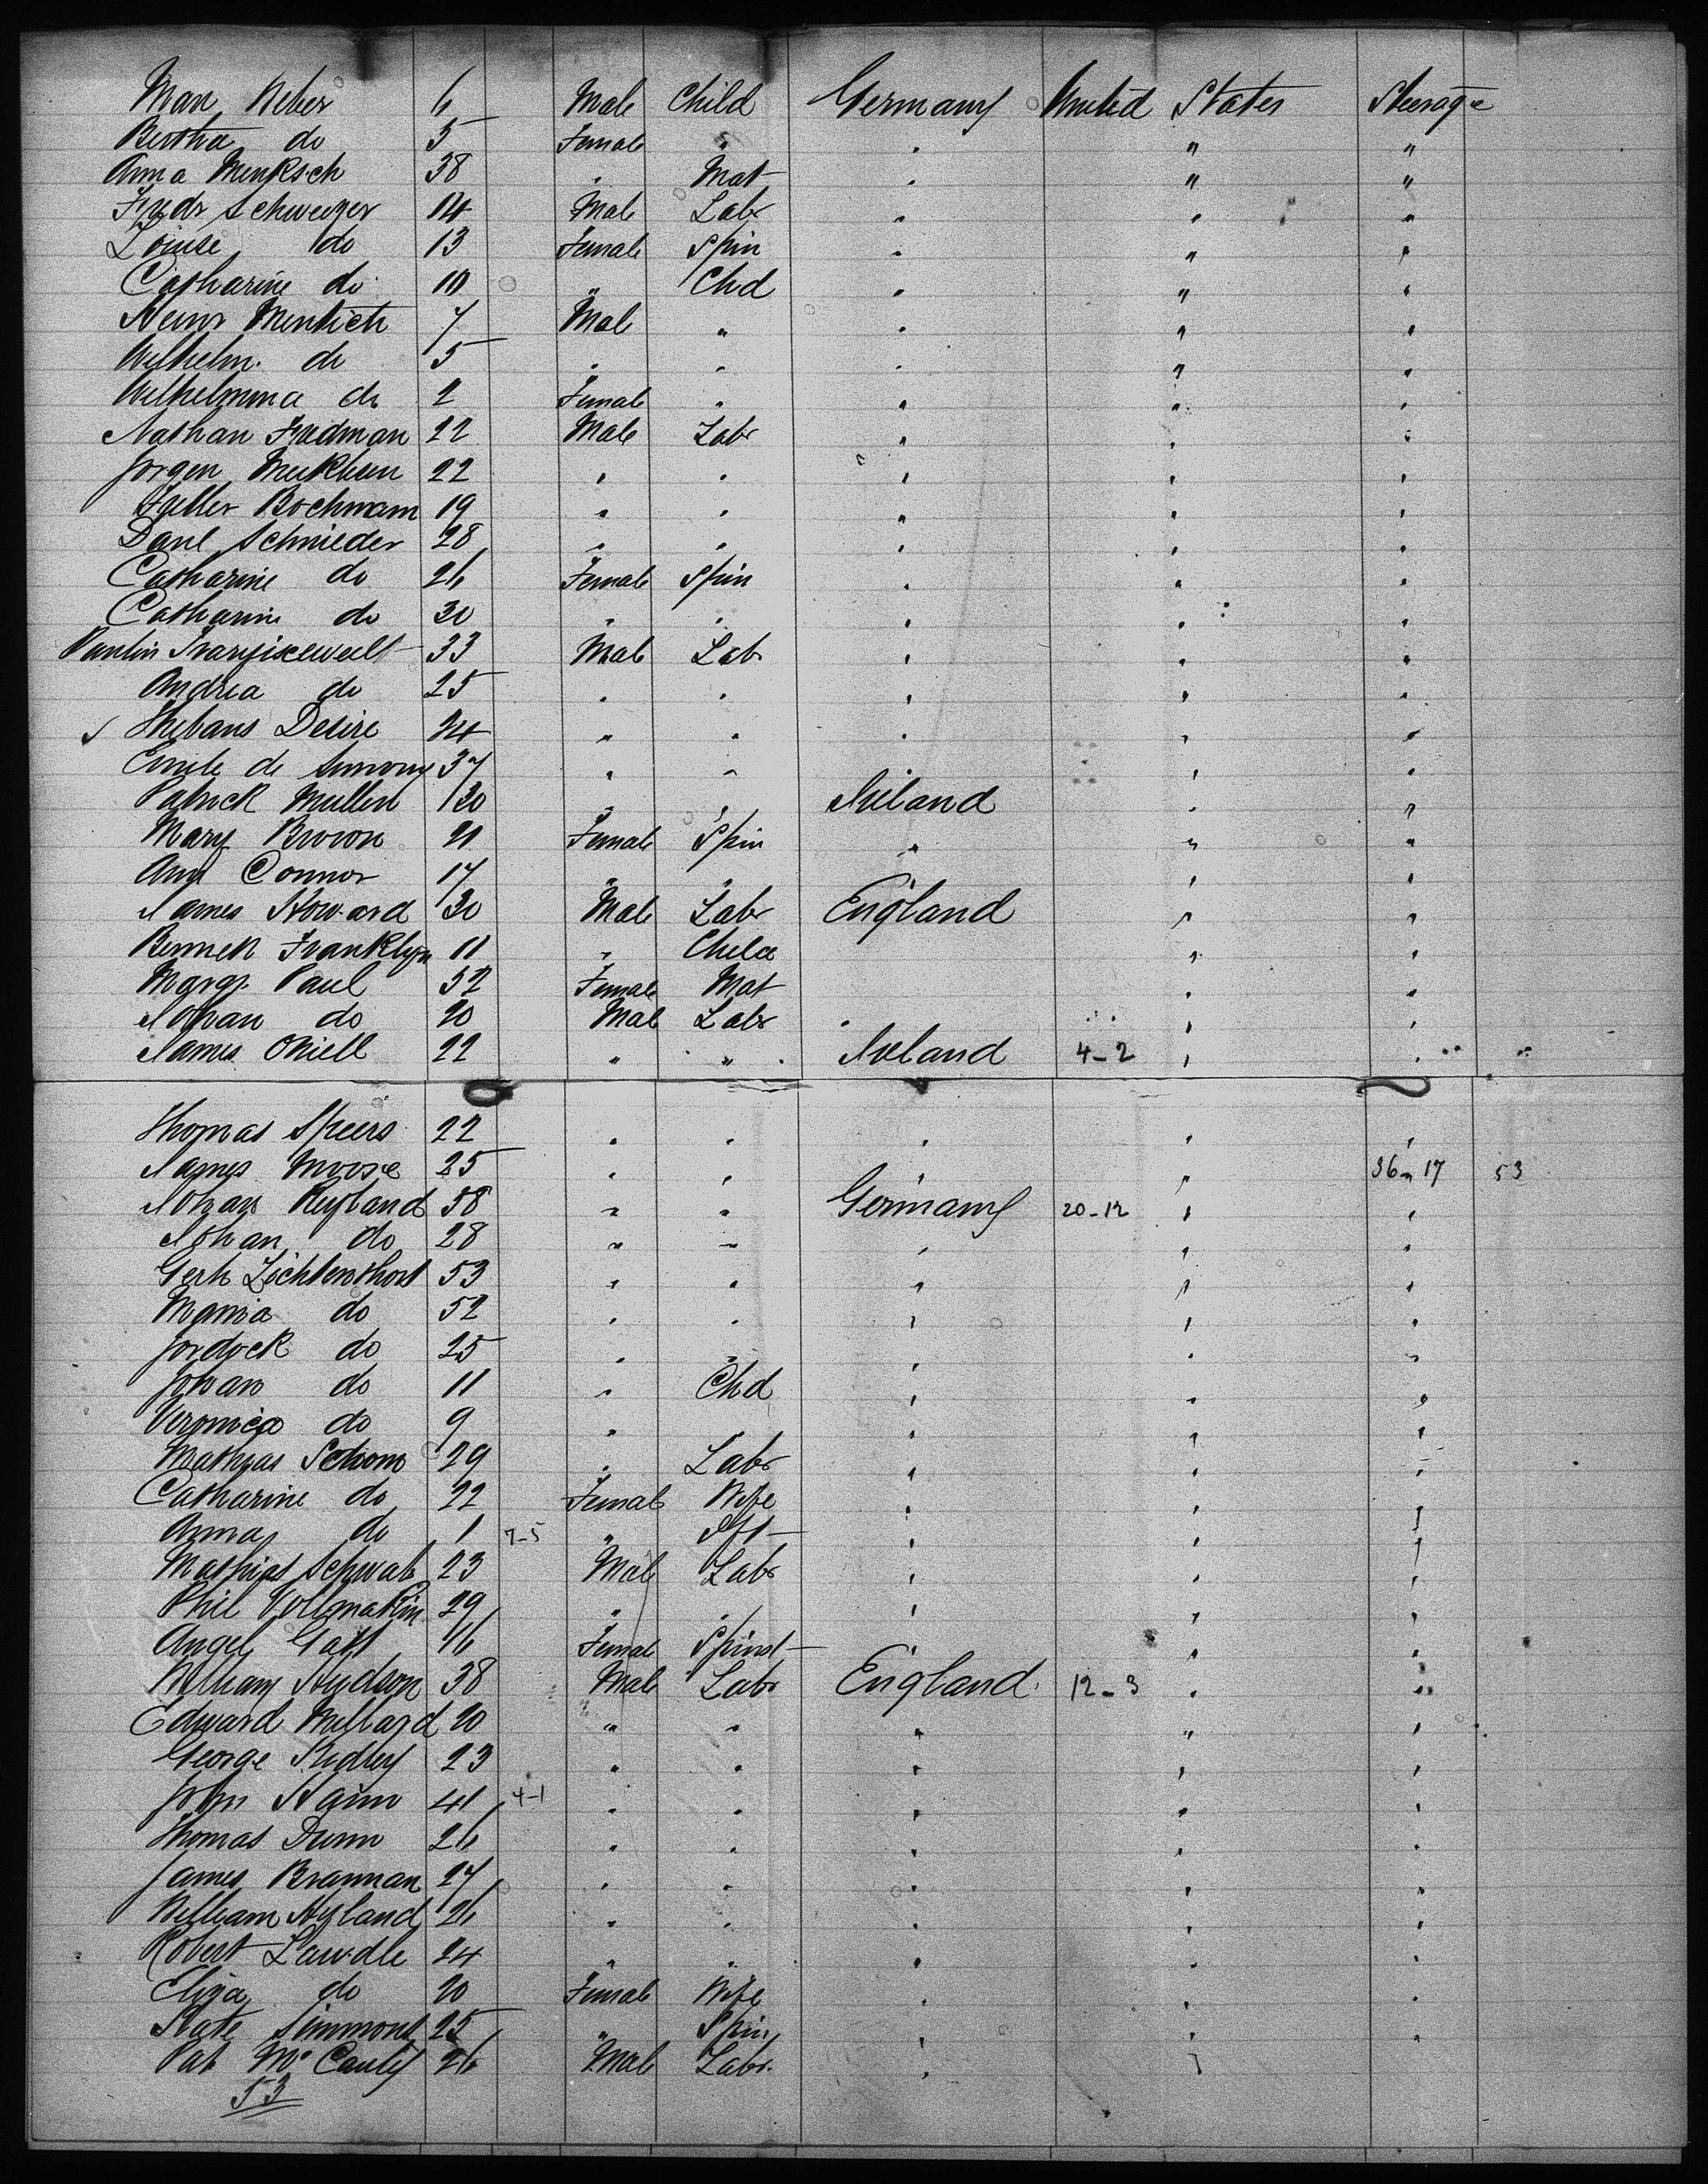 Man Weber 6 Male Child Germany United States Steerage
Bertha do 5 Female " " " "
Anna Menksch 38 " Mat " " "
Fredr Schweizer 14 Male Labr " " "
Louise do 13 Female Spin " " "
Catharine do 10 " Chd " " "
Heinr Mentich 7 Male " " " "
Wilhelm do 5 " " " " "
Wilhelmina do 2 Female " " " "
Nathan Fredman 22 Male Labr " " "
Jorgen 22 " " " " "
Bochmann 19 " " " " "
Danl Schnieder 28 " " " " "
Catharine do 26 Female Spin " " "
Catharin do 30 " " " " "
33 Male Lab " " "
Andrea do 25 " " " " "
Thebans Desire 24 " " " " "
Emile de Simony 37 " " " " "
Patrick Mullen 20 " " Ireland " "
Mary Brown 21 Female Spin " " "
Ann Connor 17 " " " " "
James Howard 30 Male Labr England " "
Bennett Franklyn 11 " Child " "
Margt Paul 32 Female Mat " "
Johan do 20 Male Labr " " "
James ONiell 22 " " Ireland 4-2 " "
Thomas Speers 22 " " " " "
James Moore 25 " " " 36-17 53
Johan Reyland 58 " " Germany 20-12 " "
Johan do 28 " " " " "
Gerh Lichtenthort 53 " " " " "
Maria do 52 " " " " "
do 25 " " " " "
Johan do 11 " Chd " " "
Veronica do 9 " " " "
Mathias Schom 29 " Labr " " "
Catharine do 22 Female Wife " " "
Anna do 1 7-5 " Ift " " "
Mathias Schwab 23 Male Labr " " "
Phil 29 " " " " "
Angel Gatt 16 Female Spinst " "
William Hudson 38 Male Labr England 12-3 " "
Edward Millard 20 " " " " "
George Ridley 23 " " " " "
John Hann 41 4-1 " " " " "
Thomas Dunn 26 " " " " "
James Brannan 27 " " " " "
William Hyland 26 " " " " "
Robert Lawdle 24 " " " " "
Eliza do 20 Female Wife " " "
Kate Simmons 25 " Spin " " "
Pat McCauly 26 Male Labr " "
53